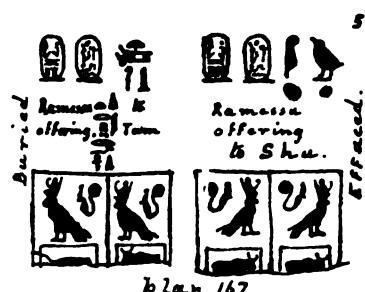 5
Ramessu to
offering. Tum
Buried
Ramessu
offering
to Shu.
Effaced.
plan 167